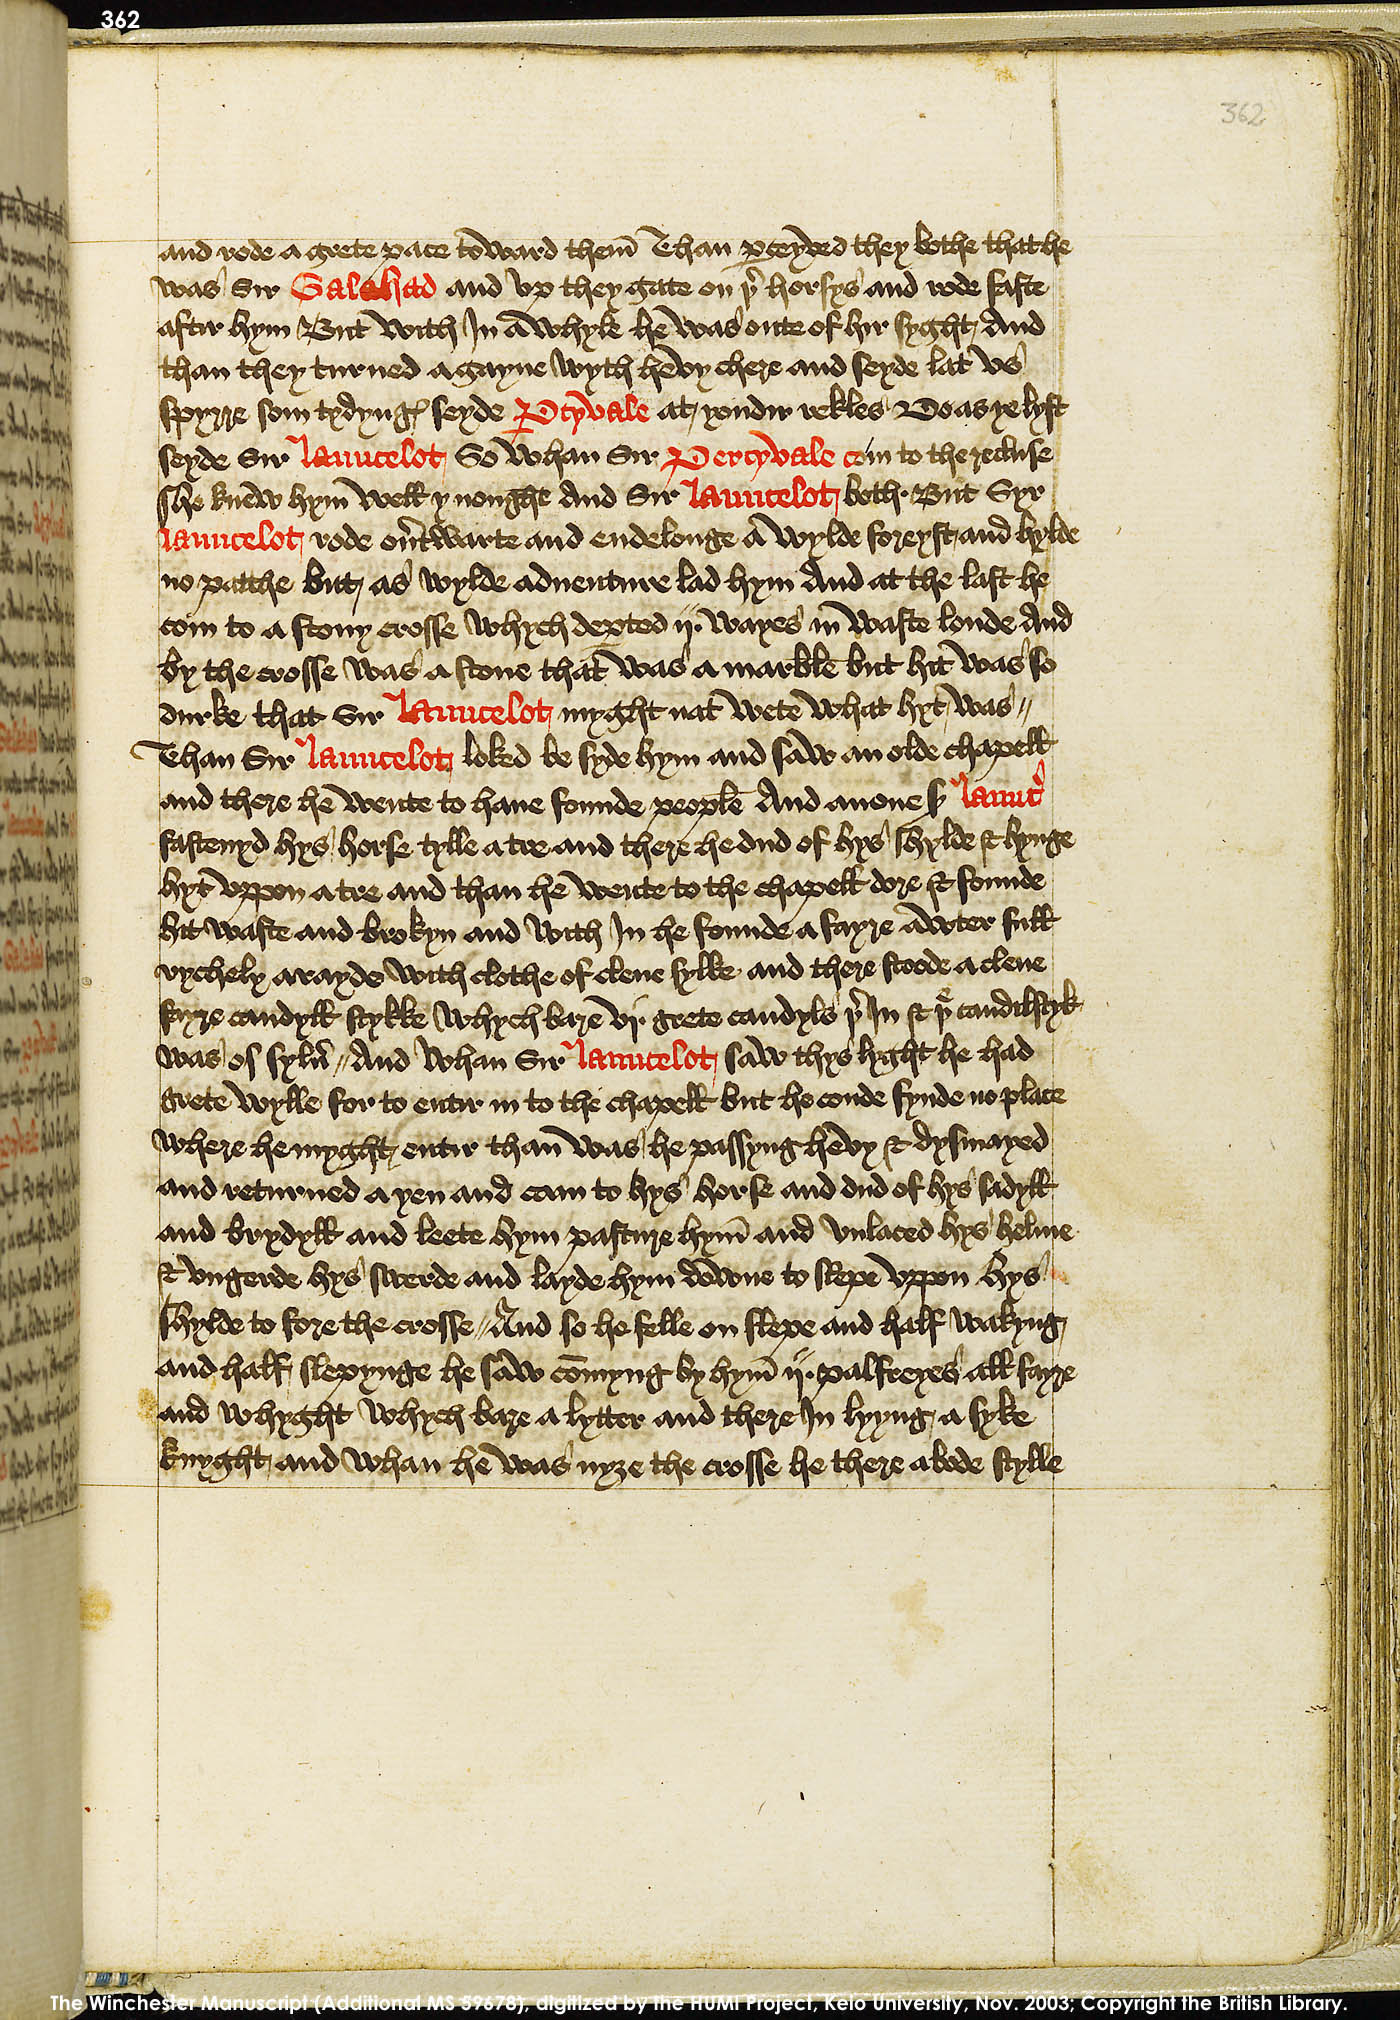 362
362
and rode a grete pace toward them Than ꝑceyved they bothe that he
was Sir Galahad and vp they gate on þr̄ horsys and rode faste
aftir hym But with In a whyle he was oute of hir syght And
than they turned agayne wyth hevy chere and seyde lat vs
spyrre som tydyngꝭ seyde Ꝑcyvale at yondir rekles Do as ye lyst
seyde Sir Launcelot So whan Sir Percyvale com to the recluse
she knew hym well y noughe And Sir Launcelot both · But Syr
Launcelot rode ou̔twarte and endelonge a wylde foreyst and hylde
no patthe but as wylde adventure lad hym And at the last he
com to a stony crosse whych deꝑted ij · wayes in waste londe And
by the crosse was a stone that was a marble but hit was so
durke that Sir Launcelot myght nat wete what hyt was //
Than Sir Launcelot loked be syde hym and saw an olde chapell
and there he wente to have founde people And anone sꝭ Launc̔
fastenyd hys horse tylle a tre and there he dud of hys shylde & hynge
hyt vppon a tre and than he wente to the chapell dore & founde
hit waste and brokyn and with In he founde a fayre awter full
rychely arayde with clothe of clene sylke and there stoode a clene
fayre candyll stykke whych bare vj · grete candyls þr̄ In & þe candilstyk
was of sylu̔ // And whan Sir Launcelot saw thys lyght he had
grete wylle for to entir in to the chapell but he coude fynde no place
where he myght entir than was he passyng hevy & dysmayed
and returned a yen and cam to hys horse and dud of hys sadyll
and brydyll and leete hym pasture hym and vnlaced hys helme
& vngerde hys swerde and layde hym downe to slepe vppon hys
shylde to fore the crosse // And so he felle on slepe and half wakyng
and half slepynge he saw co̅myng by hym ij · palfreyes all fayre
and whyght whych bare a lytter and there In lyyng a syke
knyght and whan he was nyze the crosse he there abode stylle
The Winchester Manuscript (Additional MS 59678), digitized by the HUMI Project, Keio University, Nov. 2003; Copyright the British Library.